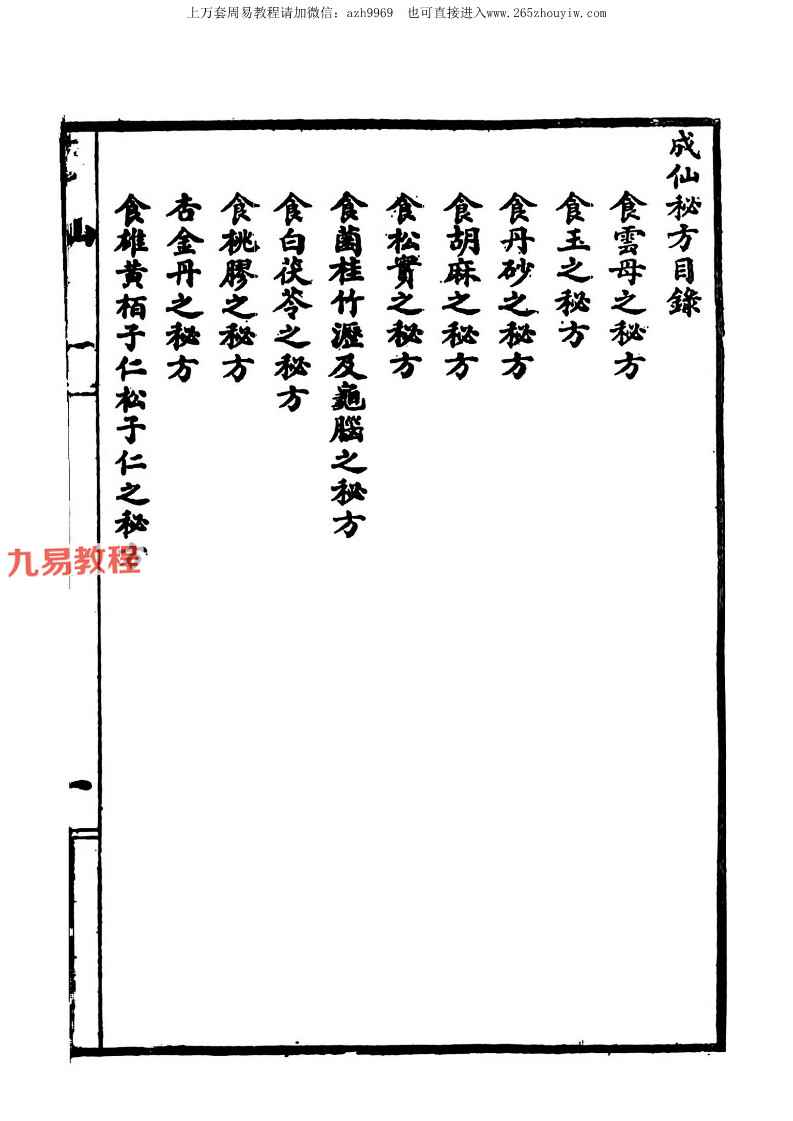 上万套周易教程请加微信：azh9969 也可直接进入www.265zhouyiw.com
成仙秘方目錄
食雲母之秘方
食玉之秘方
食丹砂之秘方
食胡麻之秘方
食松實之秘方
食菌桂竹瀝及龜腦之秘方
食白茯苓之秘方
食桃膠之秘方
杏金丹之秘方
食雄黃栢子仁松子仁之秘
九易教程
一